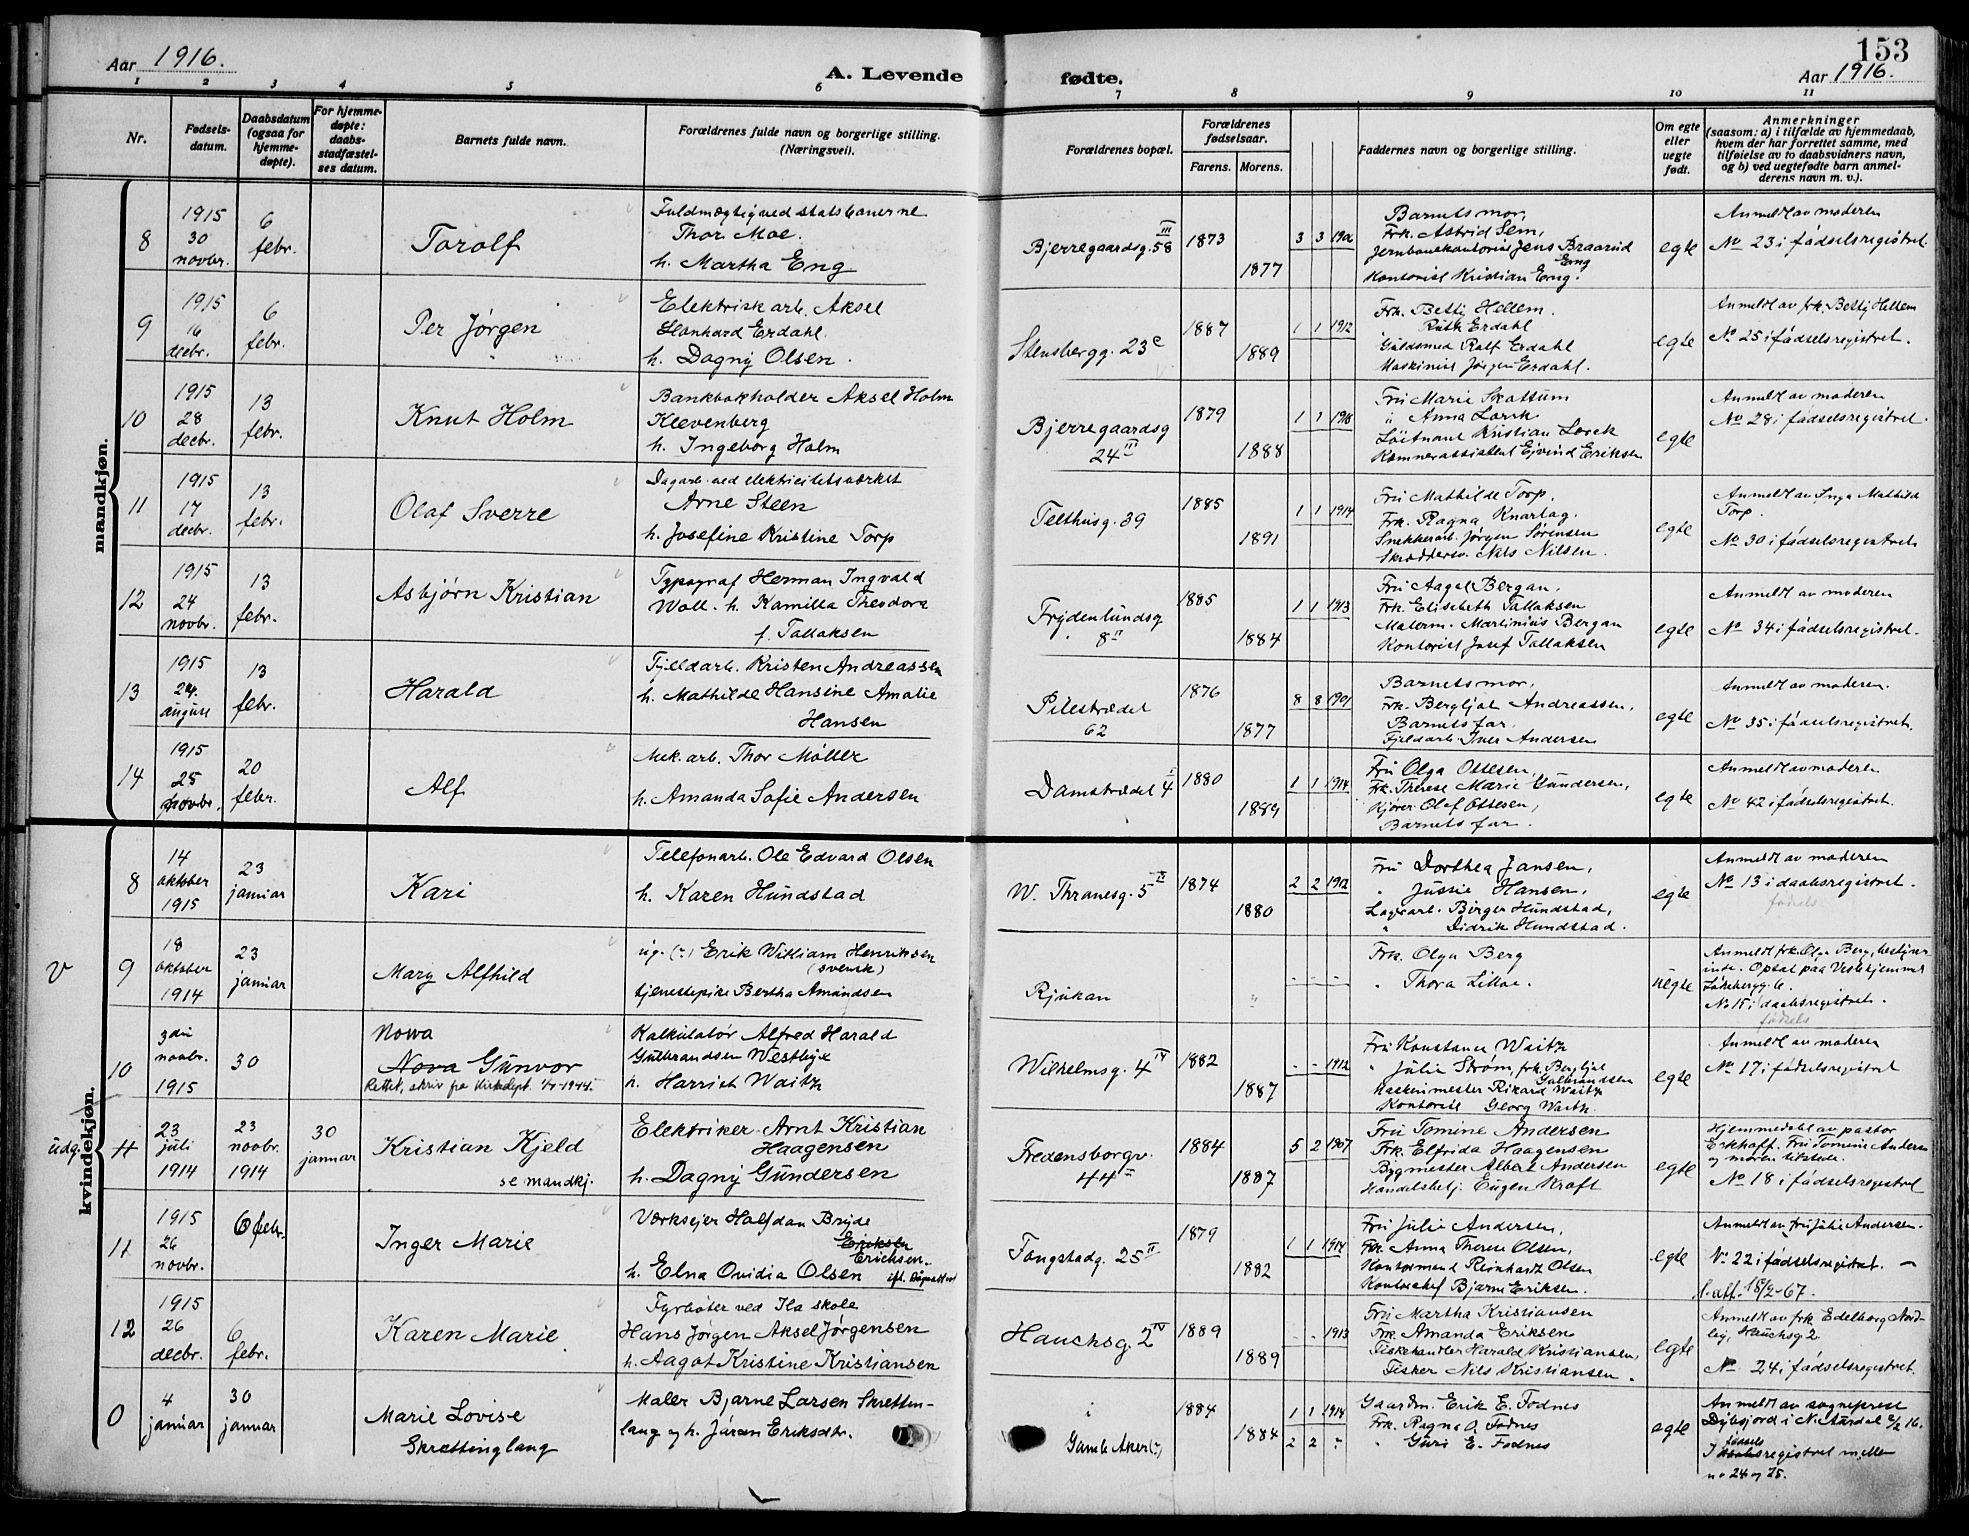 Aar 1916.
A. Levende
fødte.
153
Aar 1916.
1 2 3 4 5 6 7 8 9 10 11
Nr.
Fødsels-
datum.
Daabsdatum
(ogsaa for
hjemme-
døpte).
For hjemme-
døpte:
daabs-
stadfæstel-
ses datum.
Barnets fulde navn.
Forældrenes fulde navn og borgerlige stilling.
(Næringsvei).
Forældrenes bopæl.
Forældrenes
fødselsaar.
Farens. Morens.
Faddernes navn og borgerlige stilling.
Om egte
eller
uegte
født.
Anmerkninger
(saasom: a) i tilfælde av hjemmedaab,
hvem der har forrettet samme, med
tilføielse av to daabsvidners navn,
og b) ved uegtefødte barn anmel-
derens navn m. v.).
mandkjøn.
8
1915
30
novbr.
6
febr.
Torolf
Fuldmægtig ved statsbanerne
Thor Moe.
h. Martha Eng
Bjerregaardsg. 58 III
1873
1877
3 3
Barnets mor,
Frk. Astrid Sem,
Jernbanekontorist Jens Braarud
Kontorist Kristian Eng.
egte
Anmeldt av moderen
No 23 i fødselsregistret.
9
1915
16
decbr.
6
febr.
Per Jørgen
Elektrisk arb. Aksel
Leonhard Erdahl.
h. Dagny Olsen.
Stensbergg. 23c
1887
1889
1 1 1912
Frk. Betty Hellem.
" Ruth Erdahl
Guldsmed Rolf Erdahl
Maskinist Jørgen Erdahl.
egte
Anmeldt av frk. Betty Hellem
No 25 i fødselsregistret.
10
1915
28
decbr.
13
febr.
Knut Holm
Bankbokholder Aksel Holm
Klevenberg
h. Ingeborg Holm
Bjerregaardsg
24 III
1879
1888
1 1
Fru Marie Skattum
" Anna Lorck
Løitnant Kristian Lorck
Kemnerassistent Ejvind Eriksen
egte
Anmeldt av moderen
No 28 i fødselsregistret.
11
1915
17
decbr.
13
febr.
Olaf Sverre
Dagarb. ved elektricitetsværket
Arne Steen
h. Josefine Kristine Torp
Telthusg. 39
1885
1891
1 1 1914
Fru Mathilde Torp.
Frk. Ragna Knartag.
Snekkerarb. Jørgen Sørensen
Skræddersv. Nils Nilsen.
egte
Anmeldt av Inga Mathilde
Torp.
No 30 i fødselsregistret
12
1915
24
novbr.
13
febr.
Asbjørn Kristian
Typograf Herman Ingvald
Woll. h. Kamilla Theodora
f. Tallaksen
Frydenlundsg
8 II
1885
1884
1 1 1913
Fru Aagot Bergan,
Frk. Elisabeth Tallaksen
Malerm. Martinius Bergan
Kontorist Josef Tallaksen
egte
Anmeldt av moderen
No 34 i fødselsregistret.
13
1915
24.
august
13
febr.
Harald
Fjeldarb. Kristen Andreassen
h. Mathilde Hansine Amalie
Hansen
Pilestrædet
62
1876
1877
8 8 1901
Barnets mor.
Frk. Bergljot Andreassen,
Barnets far.
Fjeldarb. Iver Andersen
egte
Anmeldt av moderen.
No 35 i fødselsregistret.
14
1915
25
novbr.
20
febr.
Alf
Mek. arb. Thor Møller
h. Amanda Sofie Andersen
Damstrædet 4 I
1880
1889
1 1 1914
Fru Olga Ottesen,
Frk. Therese Marie Gundersen,
Kjører Olaf Ottesen,
Barnets far.
egte
Anmeldt av moderen
No 42 i fødselsregistret.
kvindekjøn.
8
14
oktober
1915
23
januar
Kari
Telefonarb. Ole Edvard Olsen
h. Karen Hundstad
W. Thranesg. 5 IV
1874
1880
2 2 1912
Fru Dorthea Jansen,
" Jussie Hansen,
Lagerarb. Birger Hundstad,
" Didrik Hundstad.
egte
Anmeldt av moderen
No 13 i daabsregistret.
fødsels
v
9
18
oktober
1914
23
januar
Mary Alfhild
ug. (-:) Erik William Henriksen
(svensk)
tjenestepike Bertha Amundsen
Rjukan
"
- - -
Frk. Olga Berg
" Thora Lilloe.
uegte
Anmeldt frk. Olga Berg, bestyrer-
inde. Opsat paa Vestehjemmet
No 15 i daabsregistret.
fødsels
10
3die
novbr.
1915
30
Nowa
Nova Gunvor
Rettet, skriv fra Kirkedept. 1/4-1944.
Kalkulatør Alfred Harald
Gulbrandsen Westbye
h. Harriet Waitz
Wilhelmsg. 4 IV
1882
1887
- - 1912
Fru Konstance Waitz
" Julie Strøm, frk. Bergljot
Gulbrandsen
Maskinmester Rikard Waitz
Kontorist Georg Waitz.
egte
Anmeldt av moderen
No 17 i fødselsregistret
udg.
11
23
juli
1914
23
novbr.
1914
30
januar
Kristian Kjeld
se mandkj.
Elektriker Arnt Kristian
Haagensen
h. Dagny Gundersen
Fredensborgv.
44 II
1884
1887
5 2 1907
Fru Tomine Andersen
Frk. Elfrida Haagensen
Bygmester Albert Andersen
Handelsbetj. Eugen Kraft
egte
Hjemmedøbt av pastor
Eckhoff. Fru Tomine Andersen
og moren tilstede.
No 18 i fødselsregistret
11
1915
26
novbr.
6 febr.
Inger Marie
Værkseier Halfdan Bryde
Eriksen
Erichsen.
h. Elna Ovidia Olsen
Tongstadg. 25 II
1879
1882
1 1 1914
Fru Julie Andersen,
Frk. Anna Therese Olsen,
Kontormand Reinhardt Olsen
Kontorchef Bjarne Eriksen.
egte
Anmeldt av fru Julie Andersen.
No 22 i fødselsregistret. —
f. att. 18/2-67.
12
1915
26
decbr.
6
febr.
Karen Marie
Fyrbøter ved Ila skole
Hans Jørgen Aksel Jørgensen
h. Aagot Kristine Kristiansen
Hauchsg. 2 IV
1889
1889
- - 1913
Fru Martha Kristiansen
Frk. Amanda Eriksen
Fiskehandler Harald Kristiansen,
Fisker Nils Kristiansen.
egte
Anmeldt av frk Edelborg Nord-
lej, Hauchsg 2.
No 24 i fødselsregistret.
0
4
januar
30
januar
Marie Lovise
Skrættinglang
Maler Bjarne Larsen Skretten-
lang og h. Jøran Eriksdtr.
i
Gamle Aker (-:)
1884
1884
1 1 1914
2 2 -
Gaardm. Erik E. Fodnes
Frk. Ragna O. Fodnes
" Guri E. Fodnes
egte
Anmeldt av sogneprest
i N. Aurdal 2/2 16.
fødsels
I daabsregistret mellem
no 24 og 25.